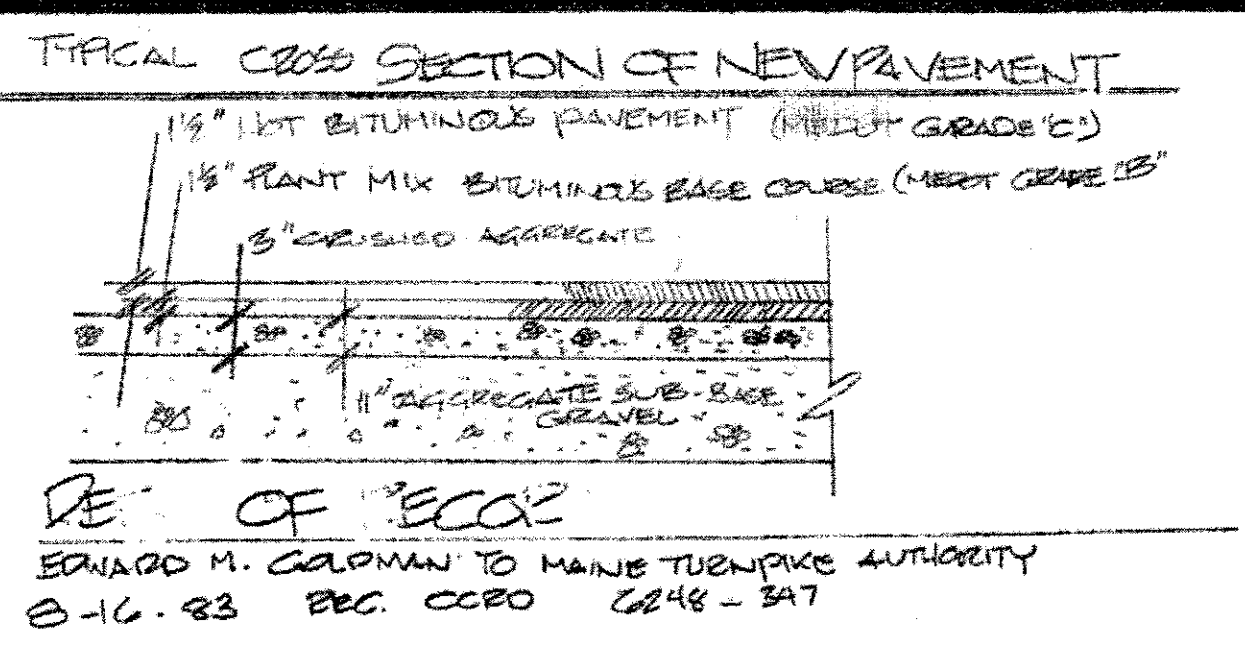 TYPICAL CROSS SECTION OF NEW PAVEMENT
1½" HOT BITUMINOUS PAVEMENT (MEDOT GRADE "C")
1½" PLANT MIX BITUMINOUS BASE COURSE (MEDOT GRADE "B"
3" CRUSHED AGGREGATE
11" AGGREGATE SUB-BASE
GRAVEL
OF
EDWARD M. GOLDMAN TO MAINE TURNPIKE AUTHORITY
8-16-83 REC. CCRD 6248-347